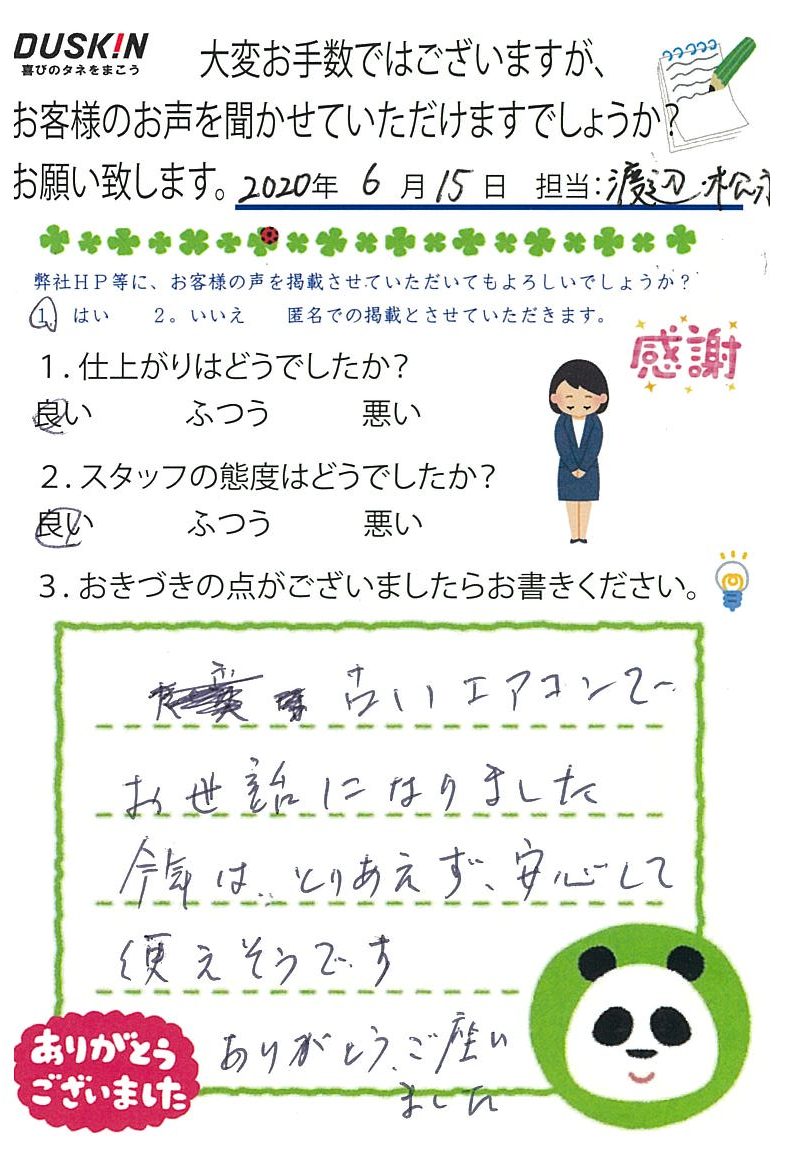 DUSKIN
喜びのタネをまこう
大変お手数ではございますが、
お客様のお声を聞かせていただけますでしょうか?
お願い致します。2020年 6月15日 担当:渡辺・松永
弊社HP等に、お客様の声を掲載させていただいてもよろしいでしょうか?
1. はい 2。いいえ 匿名での掲載とさせていただきます。
感謝
1.仕上がりはどうでしたか?
良い ふつう 悪い
2.スタッフの態度はどうでしたか?
良い ふつう 悪い
3.おきづきの点がございましたらお書きください。
古いエアコンで
お世話になりました
今年は、とりあえず、安心して
使えそうです
ありがとう、ご座い
ました
ありがとう
ございました